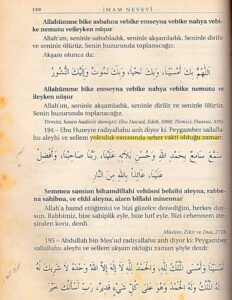 140 İMAM NEVEVİ
Allahümme bike asbahna vebike emseyna vebike nahya vebi-
ke nemutu veileyken nüşur
Allah'ım, seninle sabahladık, seninle akşamladık. Seninle dirilir
ve seninle ölürüz. Senin huzurunda toplanacağız.
Akşam olunca da:
اَللّٰهُمَّ بِكَ أَمْسَيْنَا، وَبِكَ نَحْيَا، وَبِكَ نَمُوتُ وَإِلَيْكَ النُّشُورُ
Allahümme bike emseyna vebike nahya vebike nemutu ve
ileyken nüşur
Allah'ım, seninle akşamladık. Seninle dirilir ve seninle
ölürüz. Senin huzurunda toplanacağız.
194 – Ebu Hureyre radıyallahu anh diyor ki: Peygamber sallalla-
hu aleyhi ve sellem yolculuk esnasında seher vakti olduğu zaman:
سَمَّعَ سَامِعٌ بِحَمْدِ اللّٰهِ وَحُسْنِ بَلَائِهِ عَلَيْنَا، رَبَّنَا صَاحِبْنَا، وَأَفْضِلْ
Semmea samiun bihamdillahi vehüsni belaihi aleyna, rabbe-
na sahibna, ve efdıl aleyna, aizen billahi minennar
Allah'a hamd ettiğimizi ve bizi güzelce denediğini, herkes duy-
sun. Rabbimiz, bize sahiplik eyle, bize lutf eyle. Bizi cehennem ate-
şinden koru, derdi.
Müslim, Zikir ve Dua, 2718.
195 – Abdullah bin Mes'ud radıyallahu anh diyor ki: Peygamber
sallallahu aleyhi ve sellem akşam olduğu zaman şöyle derdi:
أَمْسَيْنَا وَأَمْسَى الْمُلْكُ لِلّٰهِ، وَالْحَمْدُ لِلّٰهِ، لَا إِلٰهَ إِلَّا اللّٰهُ وَحْدَهُ لَا شَرِيكَ لَهُ